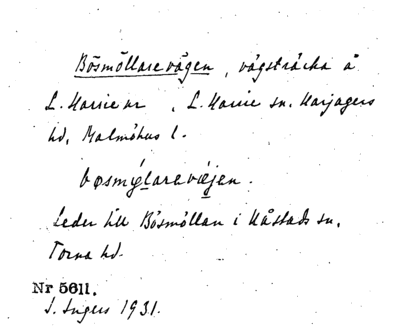 Bösmöllarevägen, vägsträcka å
L. Harrie nr , L. Harrie sn. Harjagers
hd, Malmöhus l.
bøsmýlarevæjen.
Leder till Bösmöllan i Kåstads sn.
Torna hd.
Nr 5611.
I. Ingers 1931.